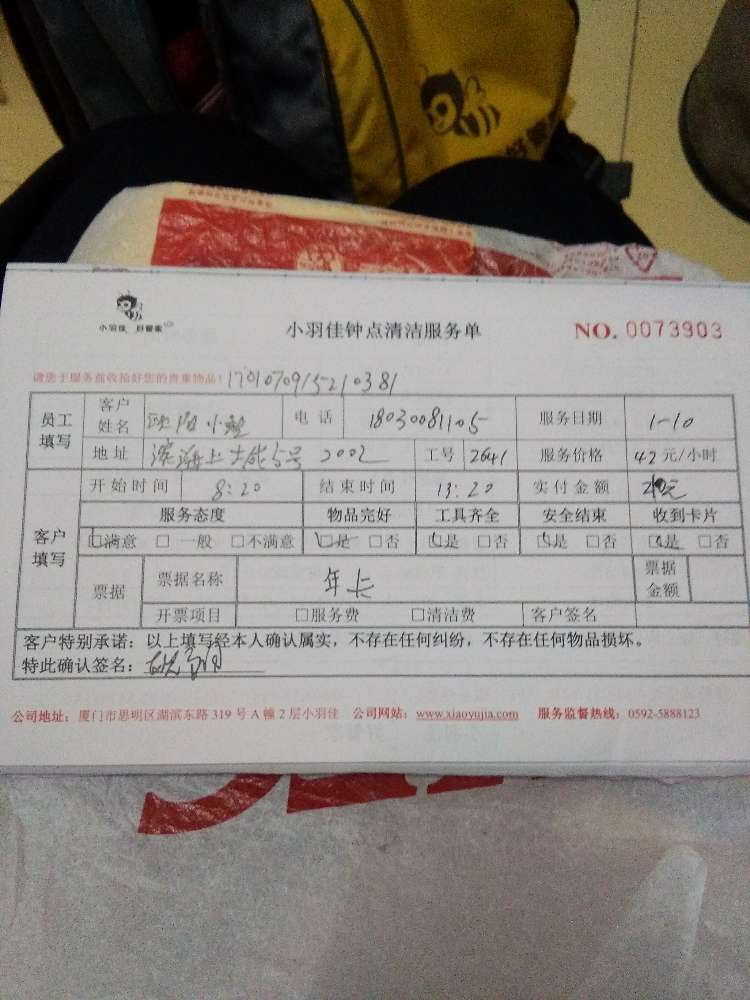 小羽佳 好管家
小羽佳钟点清洁服务单
NO. 0073903
请您于服务前收拾好您的贵重物品! 1701070915210381
员工填写 客户姓名 欧阳小 电话 18030081105 服务日期 1-10
地址 滨海上 5号 2002 工号 2641 服务价格 42元/小时
客户填写 开始时间 8:20 结束时间 13:20 实付金额 元
服务态度 物品完好 工具齐全 安全结束 收到卡片
☑满意 □一般 □不满意 ☑是 □否 ☑是 □否 ☑是 □否 ☑是 □否
票据 票据名称 年卡 票据金额
开票项目 □服务费 □清洁费 客户签名
客户特别承诺:以上填写经本人确认属实,不存在任何纠纷,不存在任何物品损坏。
特此确认签名:
公司地址:厦门市思明区湖滨东路319号A幢2层小羽佳 公司网站:www.xiaoyujia.com 服务监督热线:0592-5888123